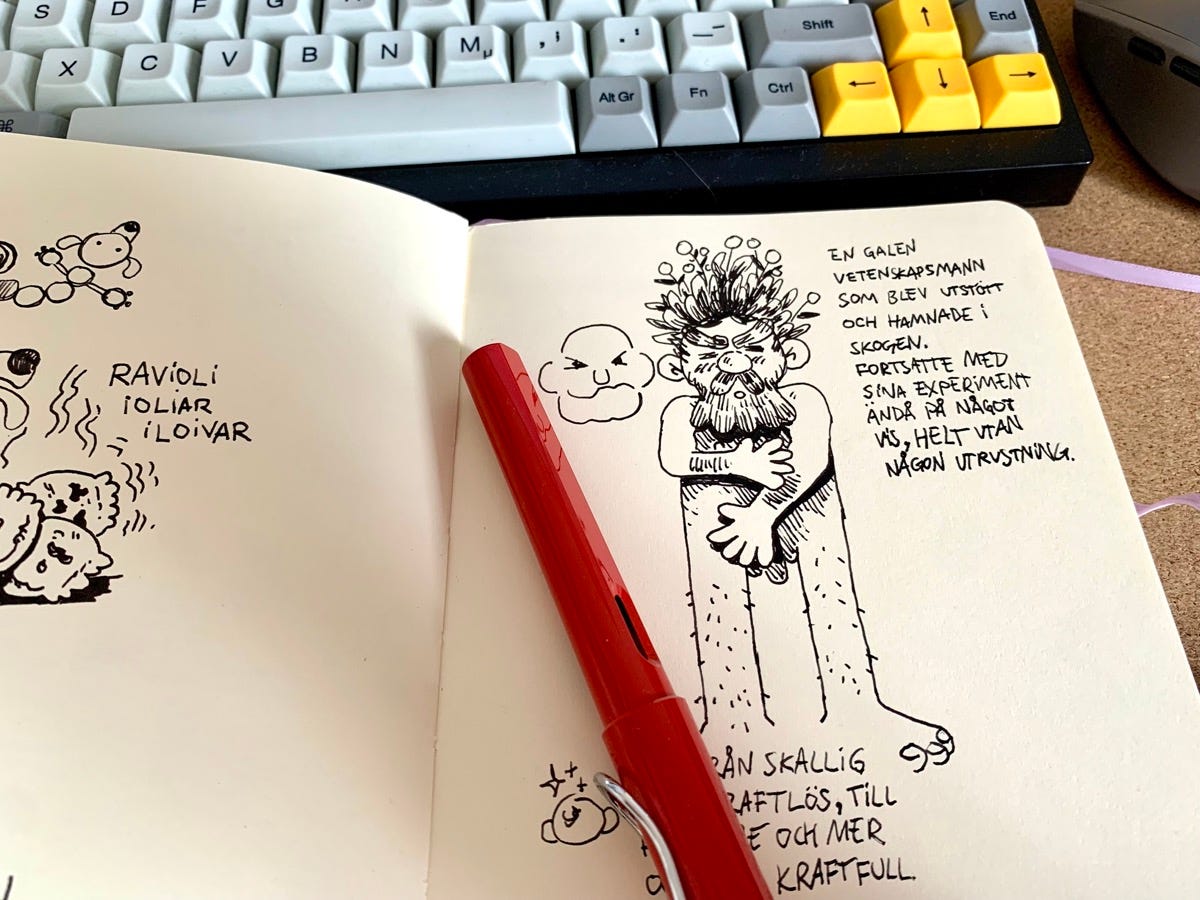 S D F G
X C V B N M µ , ; . : — – Shift ↑ End
⌘ Alt Gr Fn Ctrl ← ↓ →
RAVIOLI
IOLIAR
ILOIVAR
EN GALEN
VETENSKAPSMANN
SOM BLEV UTSTÖTT
OCH HAMNADE I
SKOGEN.
FORTSATTE MED
SINA EXPERIMENT
ÄNDÅ PÅ NÅGOT
VIS, HELT UTAN
NÅGON UTRUSTNING.
SKALLIG
TILL
OCH MER
KRAFTFULL.